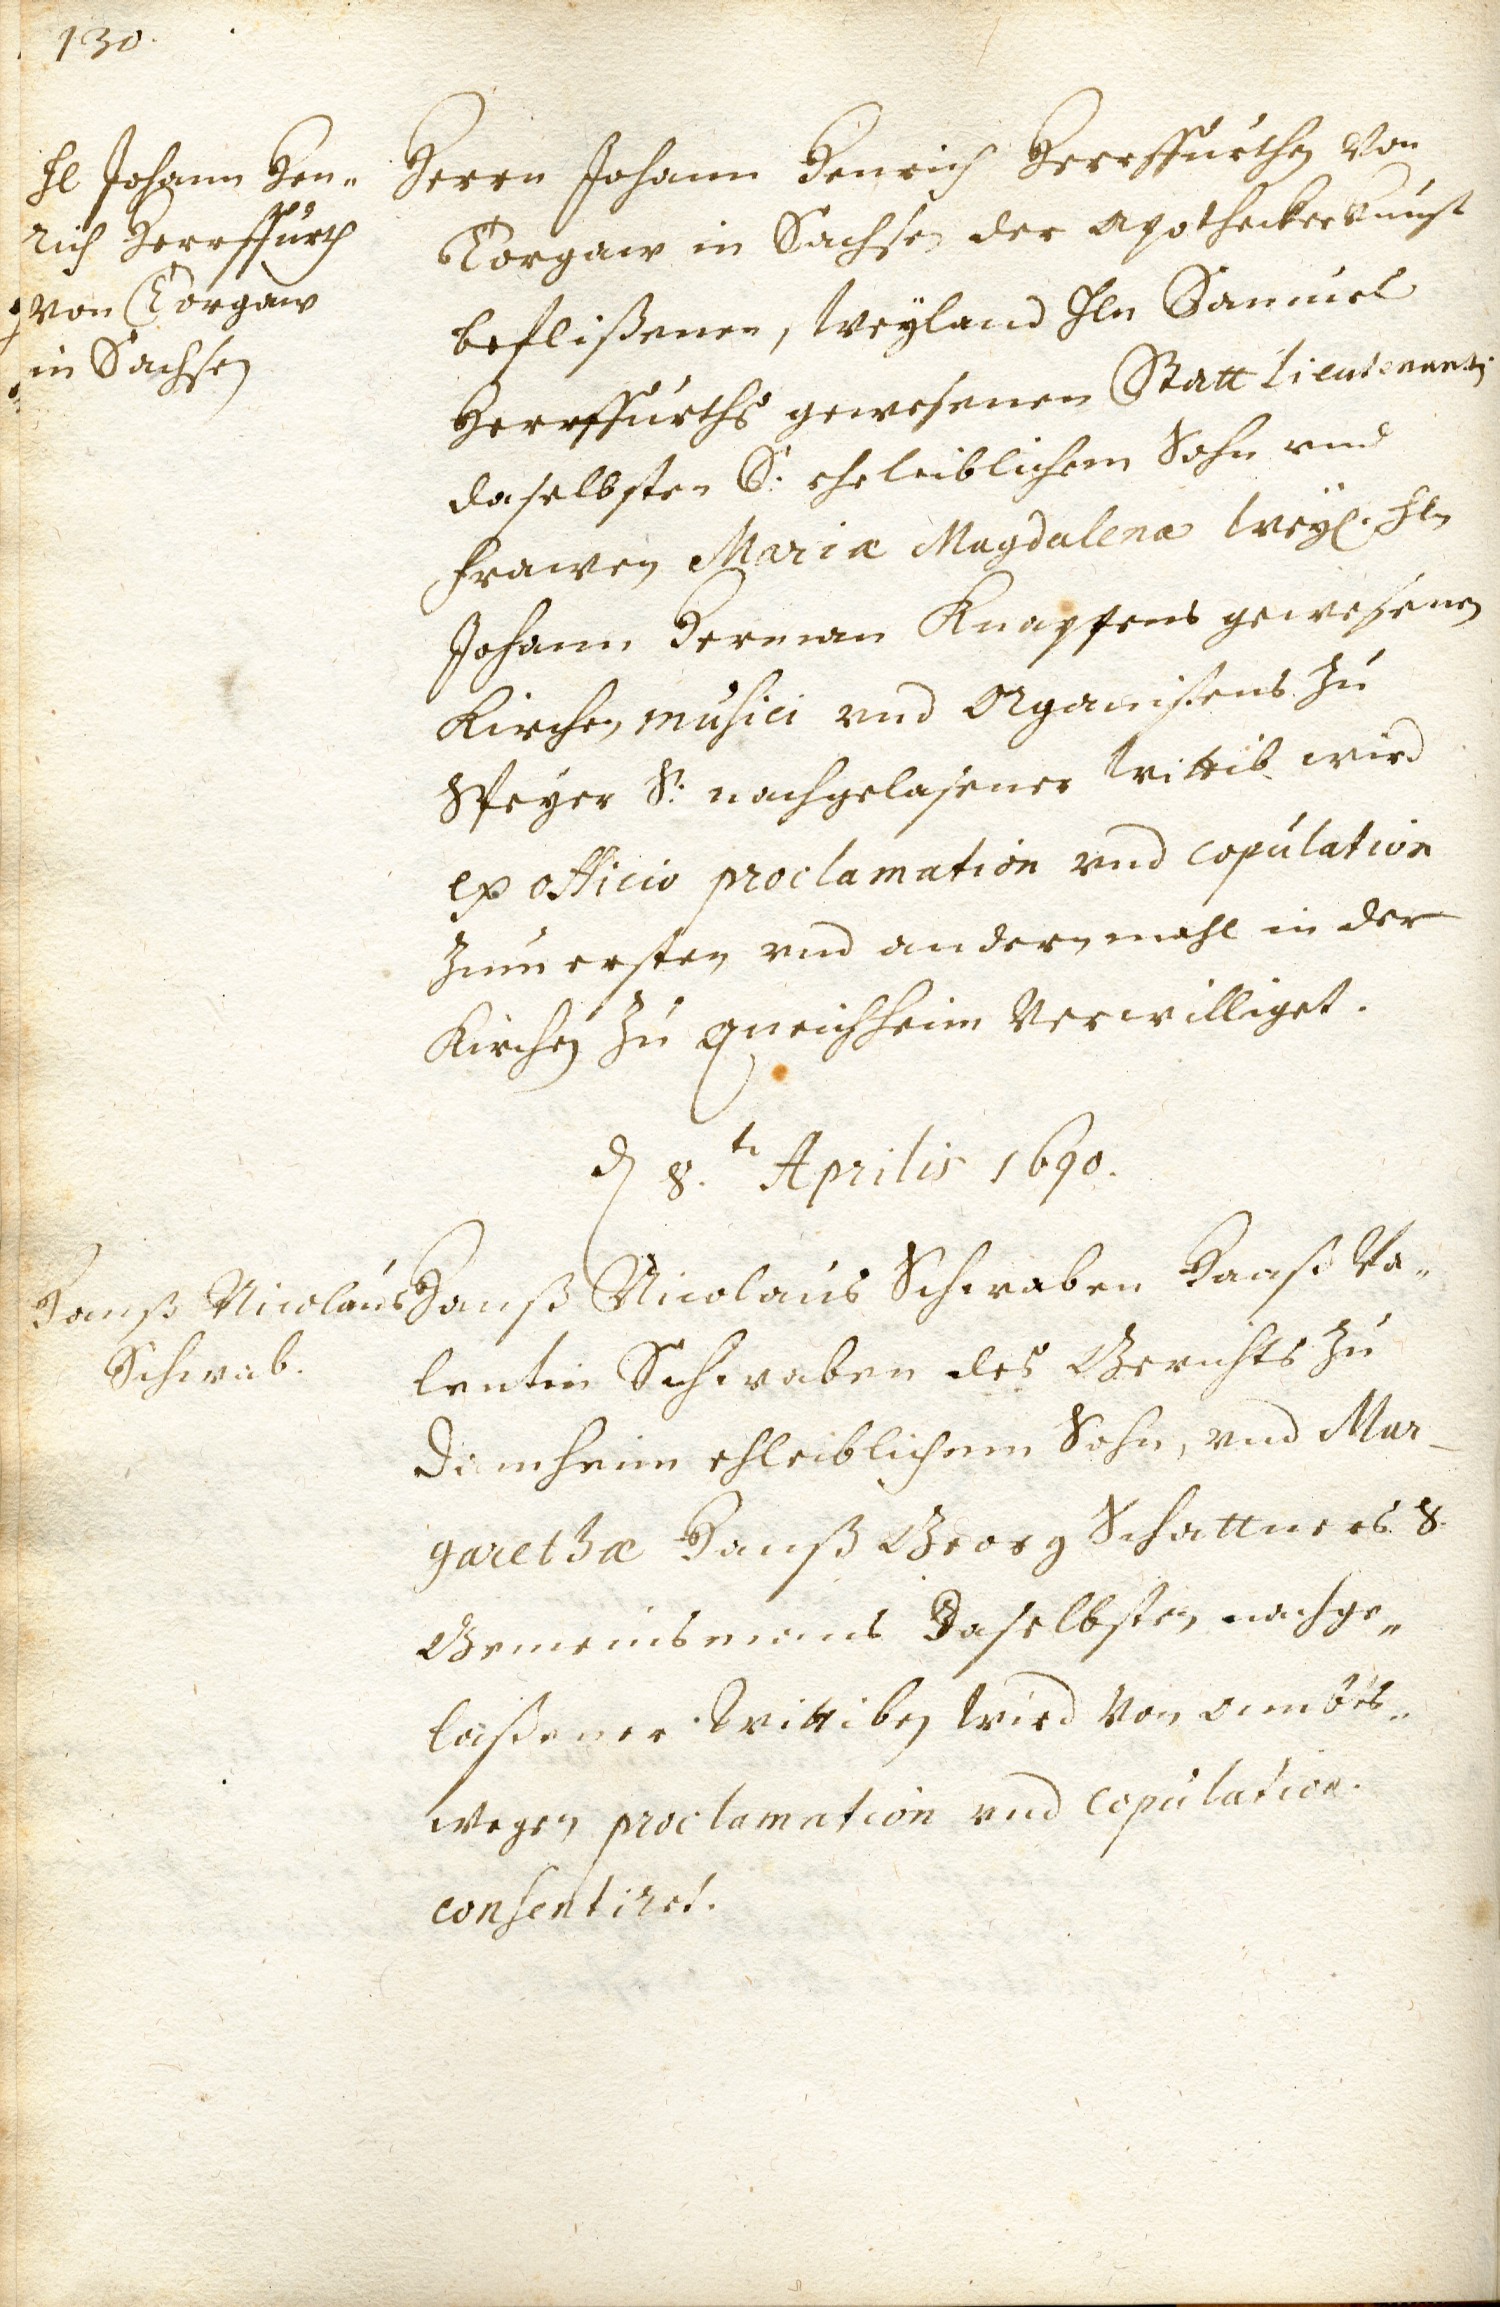 130.
Hl Johann Hen„
rich Herrffurth
von Torgaw
in Sachsen
Herrn Johann Henrich Herrffurthen von
Torgaw in Sachsen der Apotheckerkunst
beflißenen, weyland Hln Samuel
Herrffurths gewesenen Statt Lieutenants
daselbsten S. eheleiblichem Sohn vnd
Frawen Mariæ Magdalenæ weyl. Hln
Johann Herman Knapfens gewesenen
Kirchen musici vnd Organistens zu
Speyer S. nachgelasener Wittib wird
ex officio proclamation vnd copulation
zum ersten vnd andernmahl in der
Kirchen zu Queichheim verwilliget.
d 8.te Aprilis 1690.
Hanß Nicolaus
Schwab.
Hanß Nicolaus Schwaben Hanß Va„
lentin Schwaben des Gerichts zu
Damheim ehleiblichem Sohn, vnd Mar-
garethæ Hanß Georg Schattners S.
Gemeinsmans daselbsten nachge„
laßener Wittiben wird von ambts„
wegen proclamation vnd copulation
consentiret.